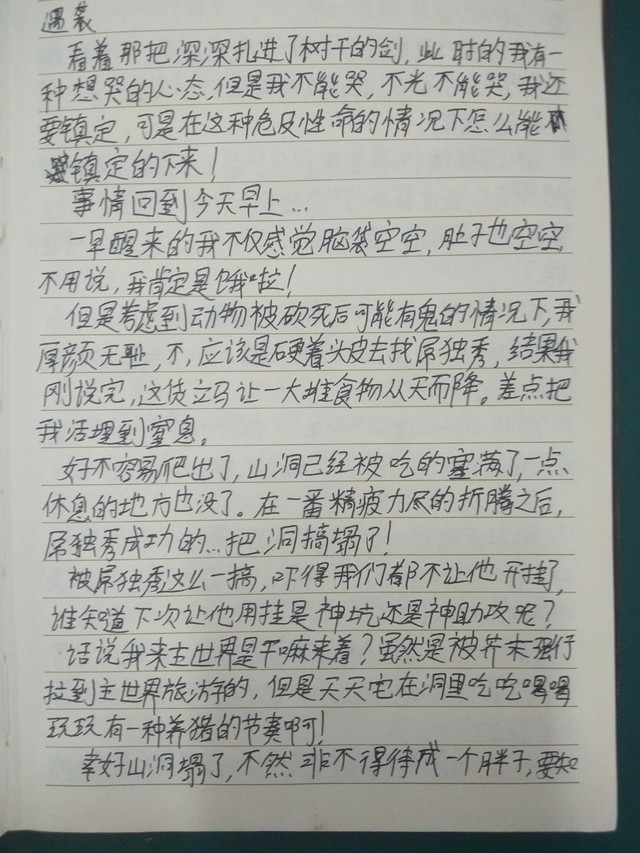 遇袭
看着那把深深扎进了树干的剑，此时的我有一
种想哭的心态，但是我不能哭，不光不能哭，我还
要镇定，可是在这种危及性命的情况下怎么能
镇定的下来！
事情回到今天早上…
一早醒来的我不仅感觉脑袋空空，肚子也空空
不用说，我肯定是饿啦！
但是考虑到动物被砍死后可能有鬼的情况下，我
厚颜无耻，不，应该是硬着头皮去找屌独秀，结果我
刚说完，这货立马让一大堆食物从天而降。差点把
我活埋到窒息。
好不容易爬出了，山洞已经被吃的塞满了，一点
休息的地方也没了。在一番精疲力尽的折腾之后，
屌独秀成功的…把洞搞塌了！
被屌独秀这么一搞，吓得我们都不让他开挂了，
谁知道下次让他用挂是神坑还是神助攻呢？
话说我来主世界是干嘛来着？虽然是被芥末强行
拉到主世界旅游的，但是天天宅在洞里吃吃喝喝
玩玩有一种养猪的节奏啊！
幸好山洞塌了，不然非不得待成一个胖子，要知